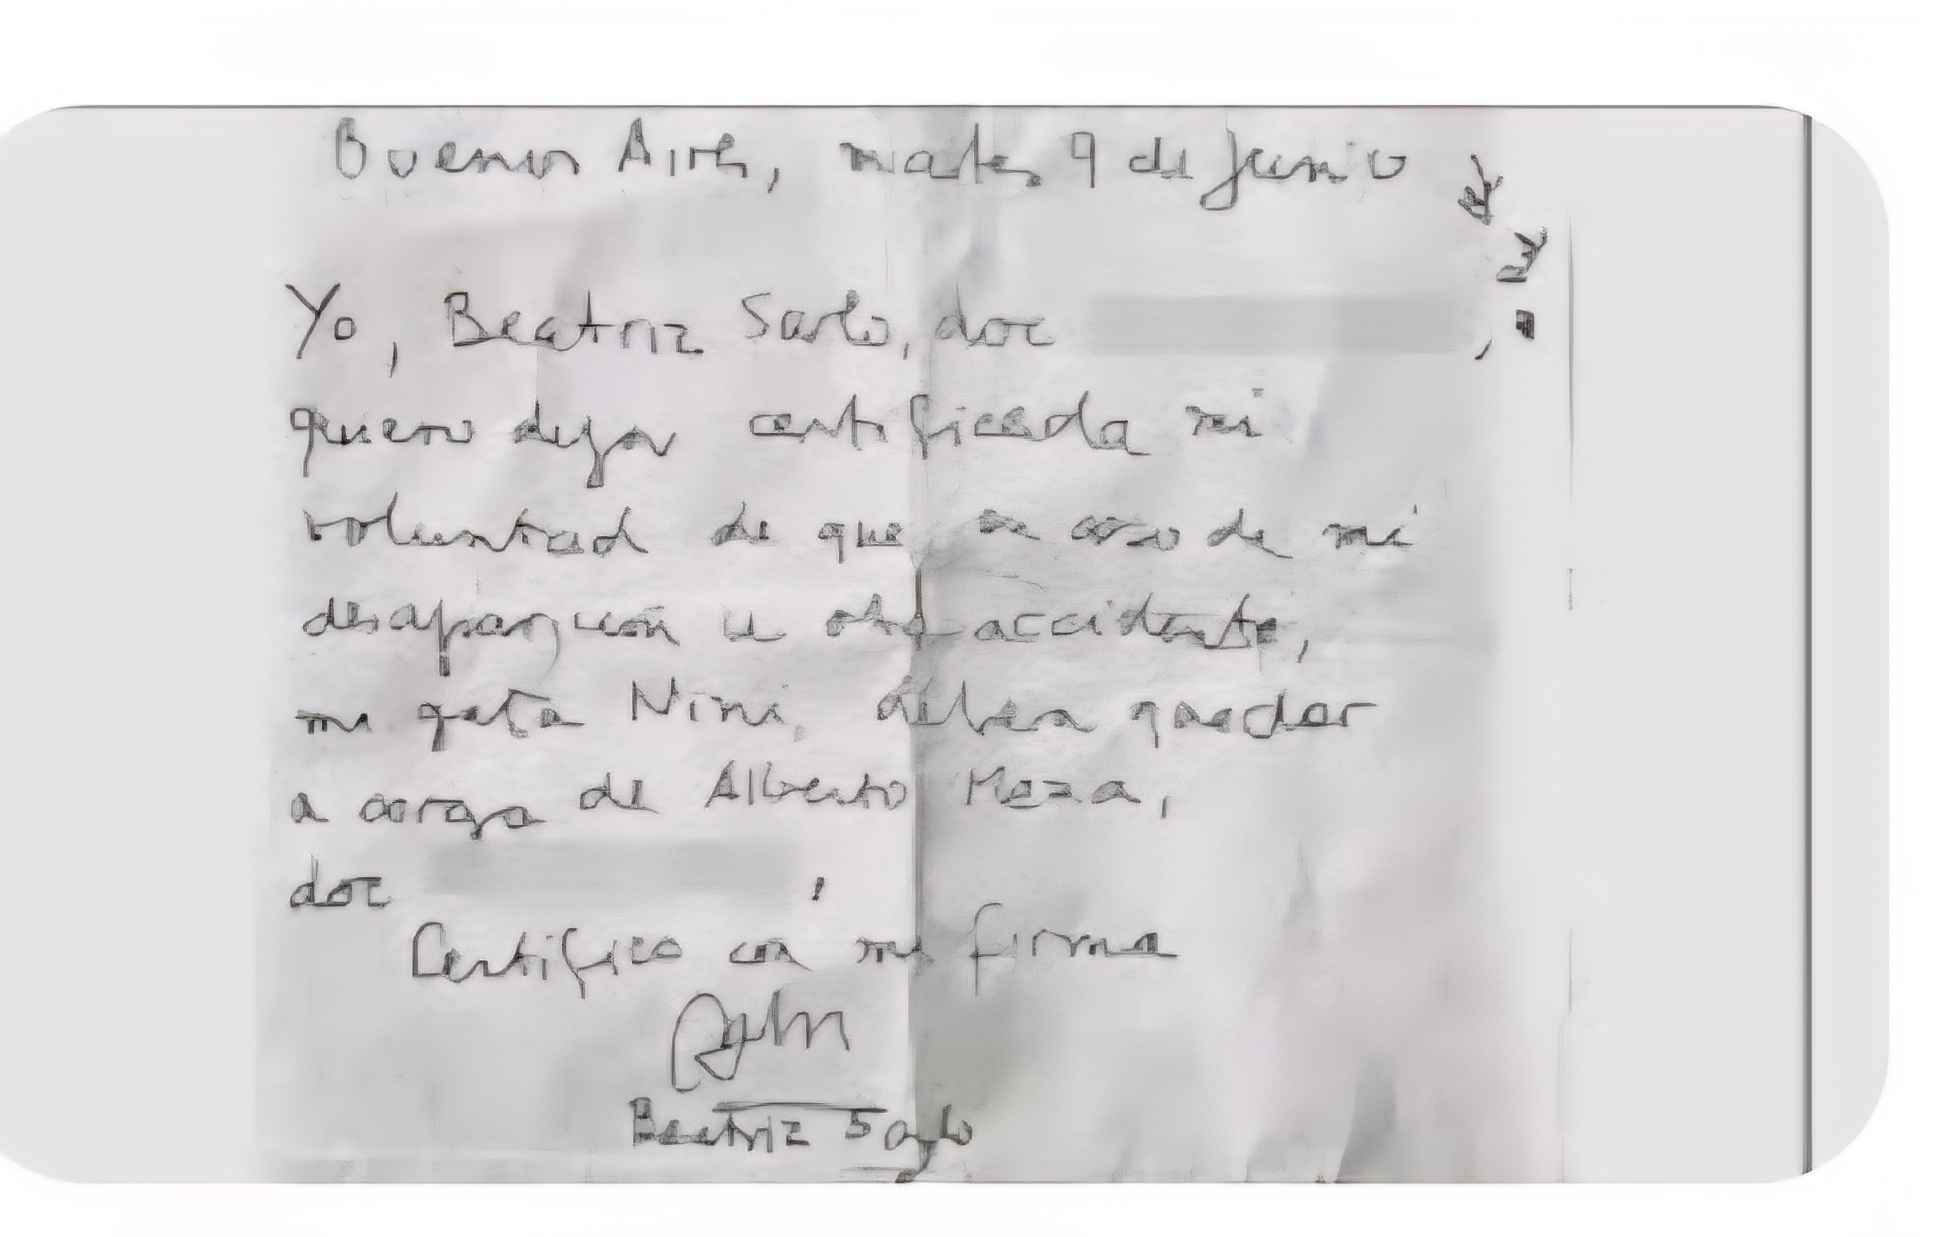 Buenos Aires, martes 9 de Junio
Yo, Beatriz Sarlo, doc ,
quiero dejar certificada mi
voluntad de que en caso de mi
desaparición u otro accidente,
mi gata Nini, deberá quedar
a cargo de Alberto Meza,
doc ,
Certifico con mi firma
Beatriz Sarlo